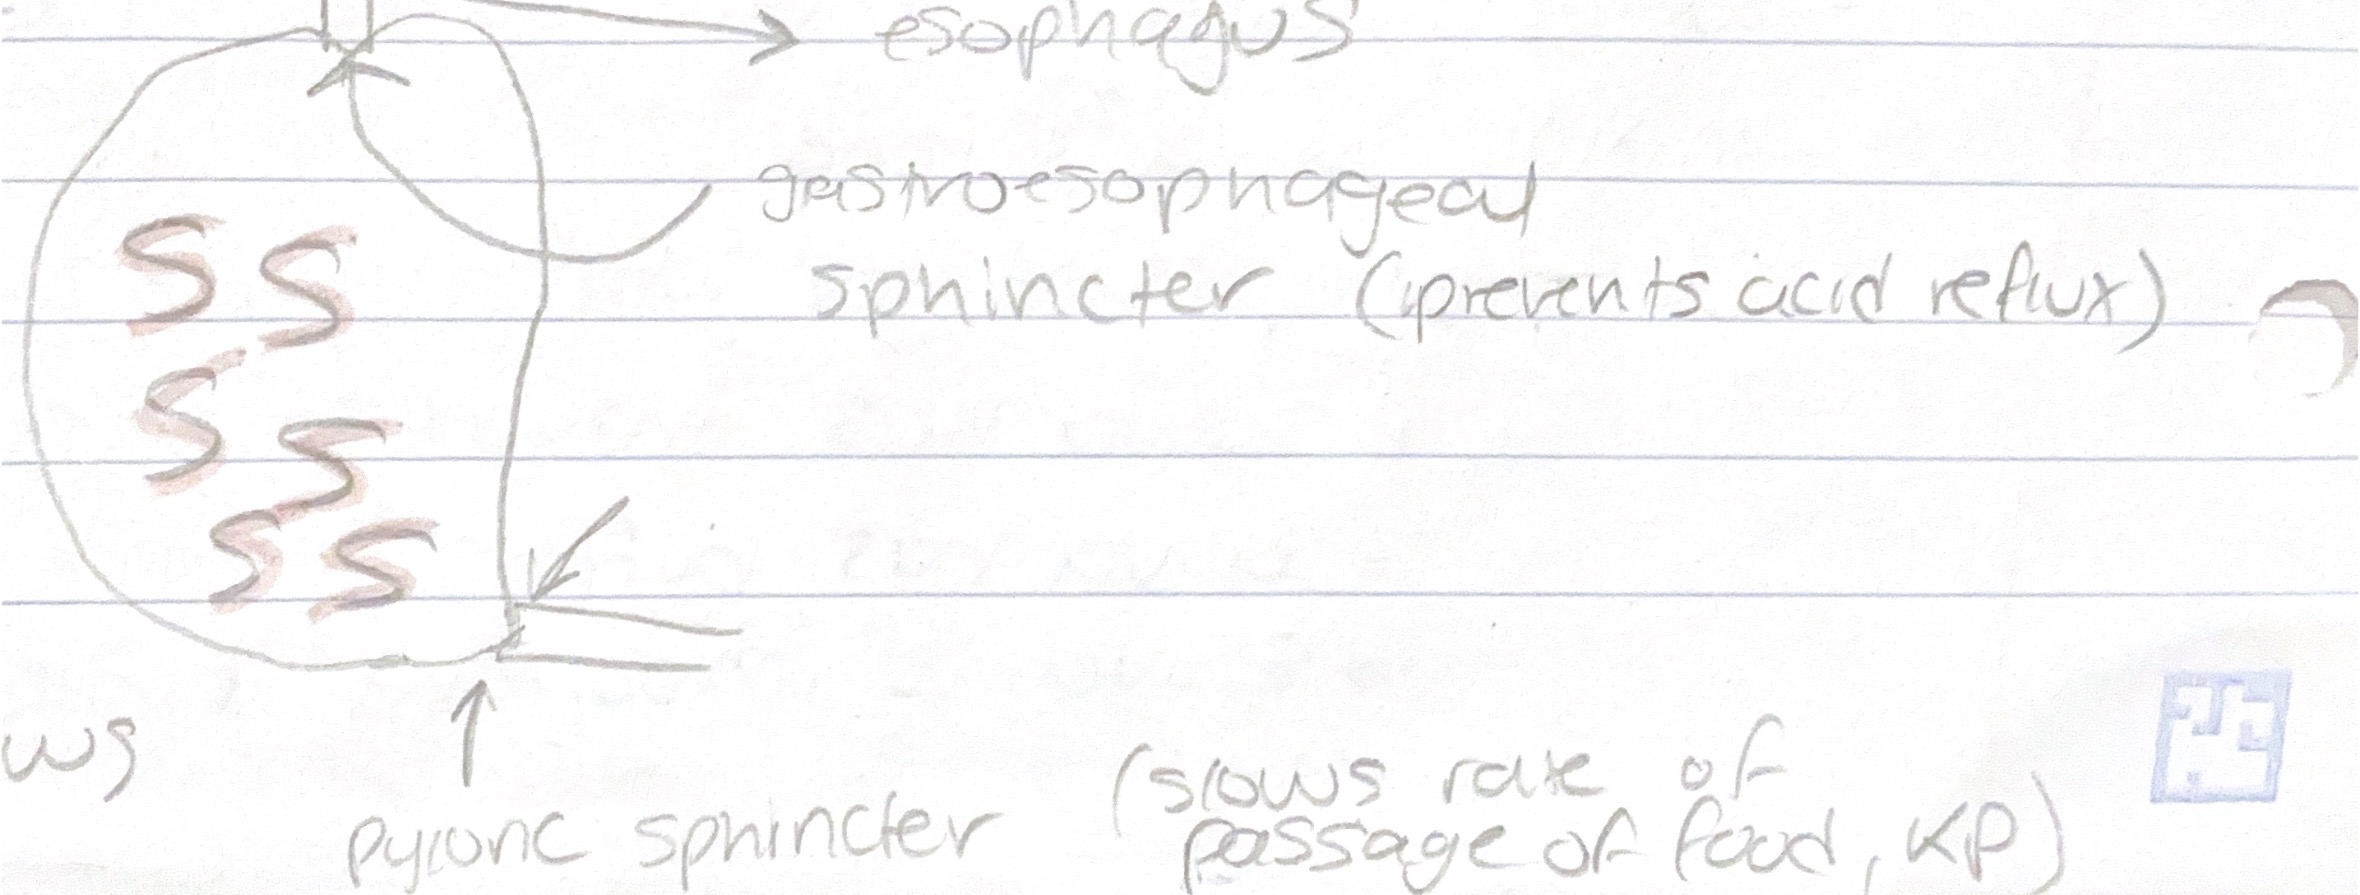 esophagus
gastroesophageal
sphincter (prevents acid reflux)
S S
S
S
S S
ws
(slows rate of
pyloric sphincter passage of food, KP)